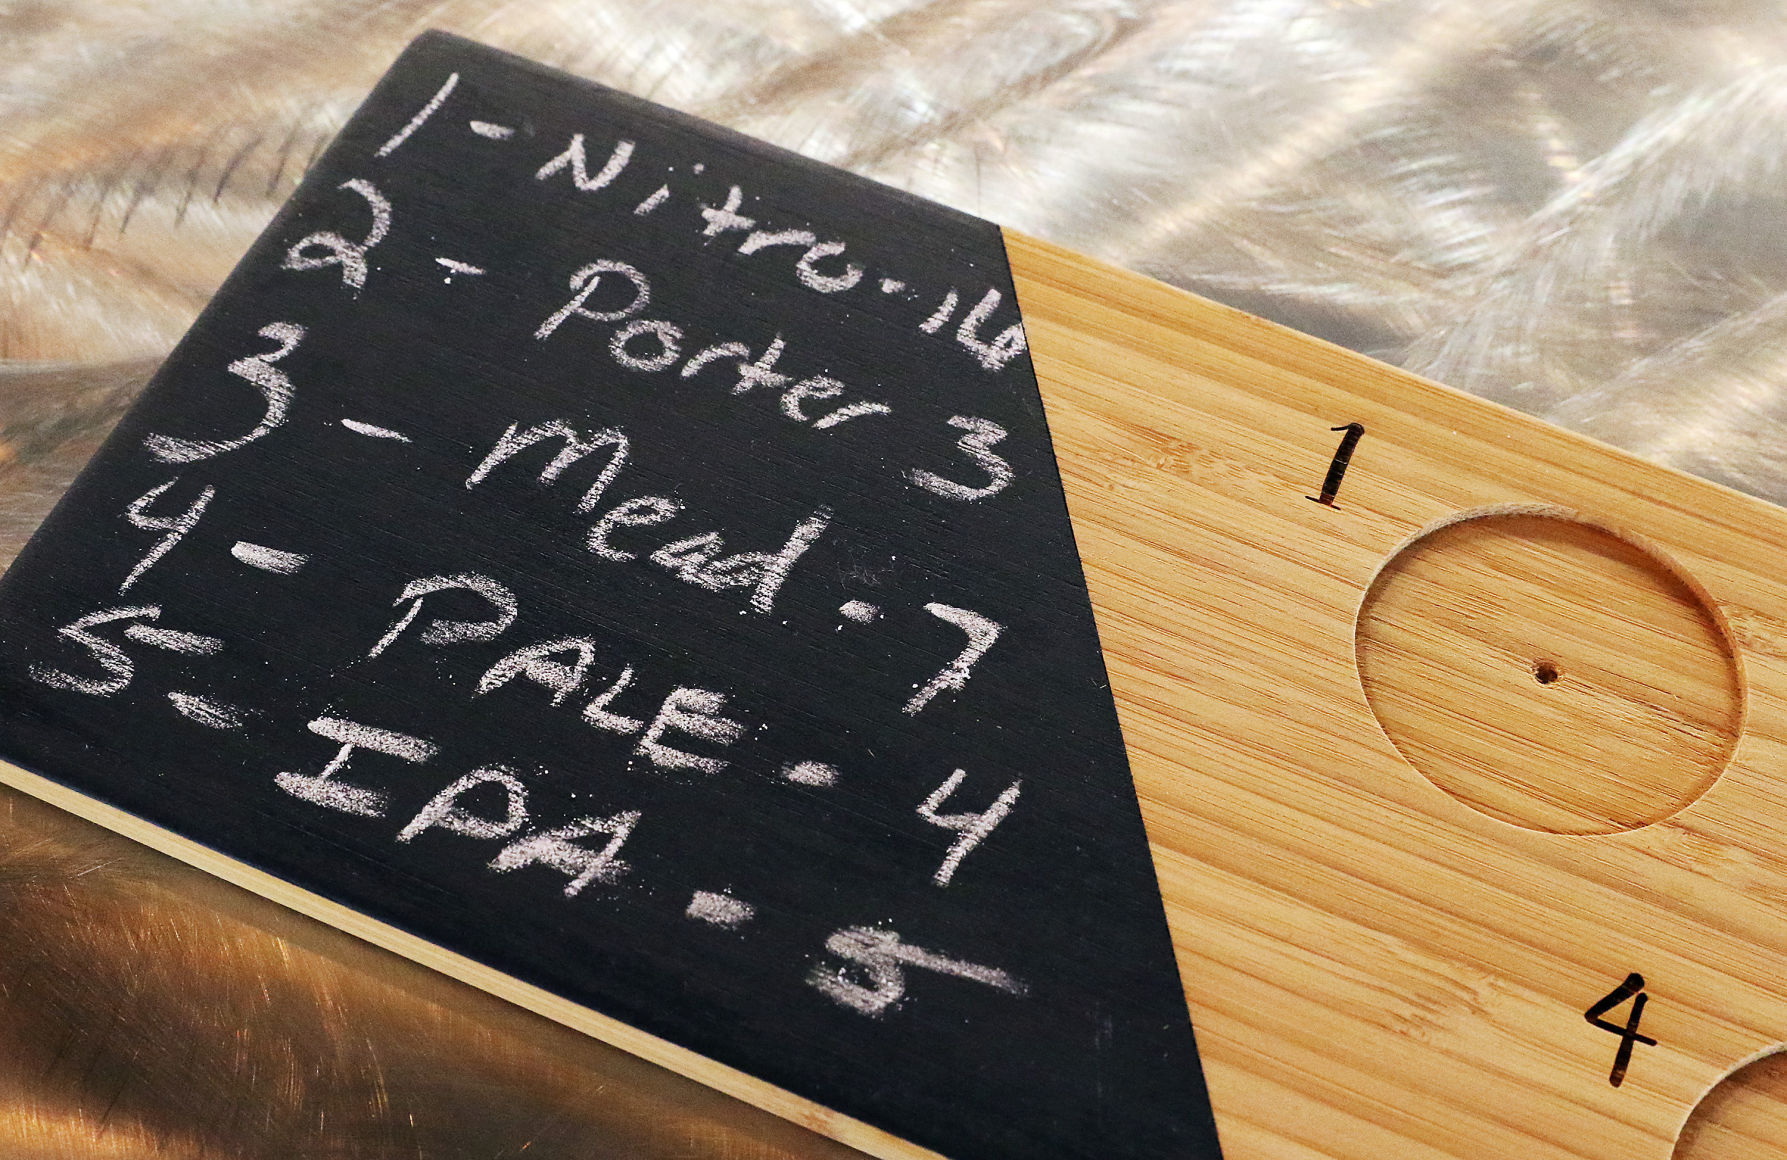 1- Nitro. 16
2 - Porter 3
3 - Mead. 7
4 - PALE. 4
5- IPA - 5
1
4